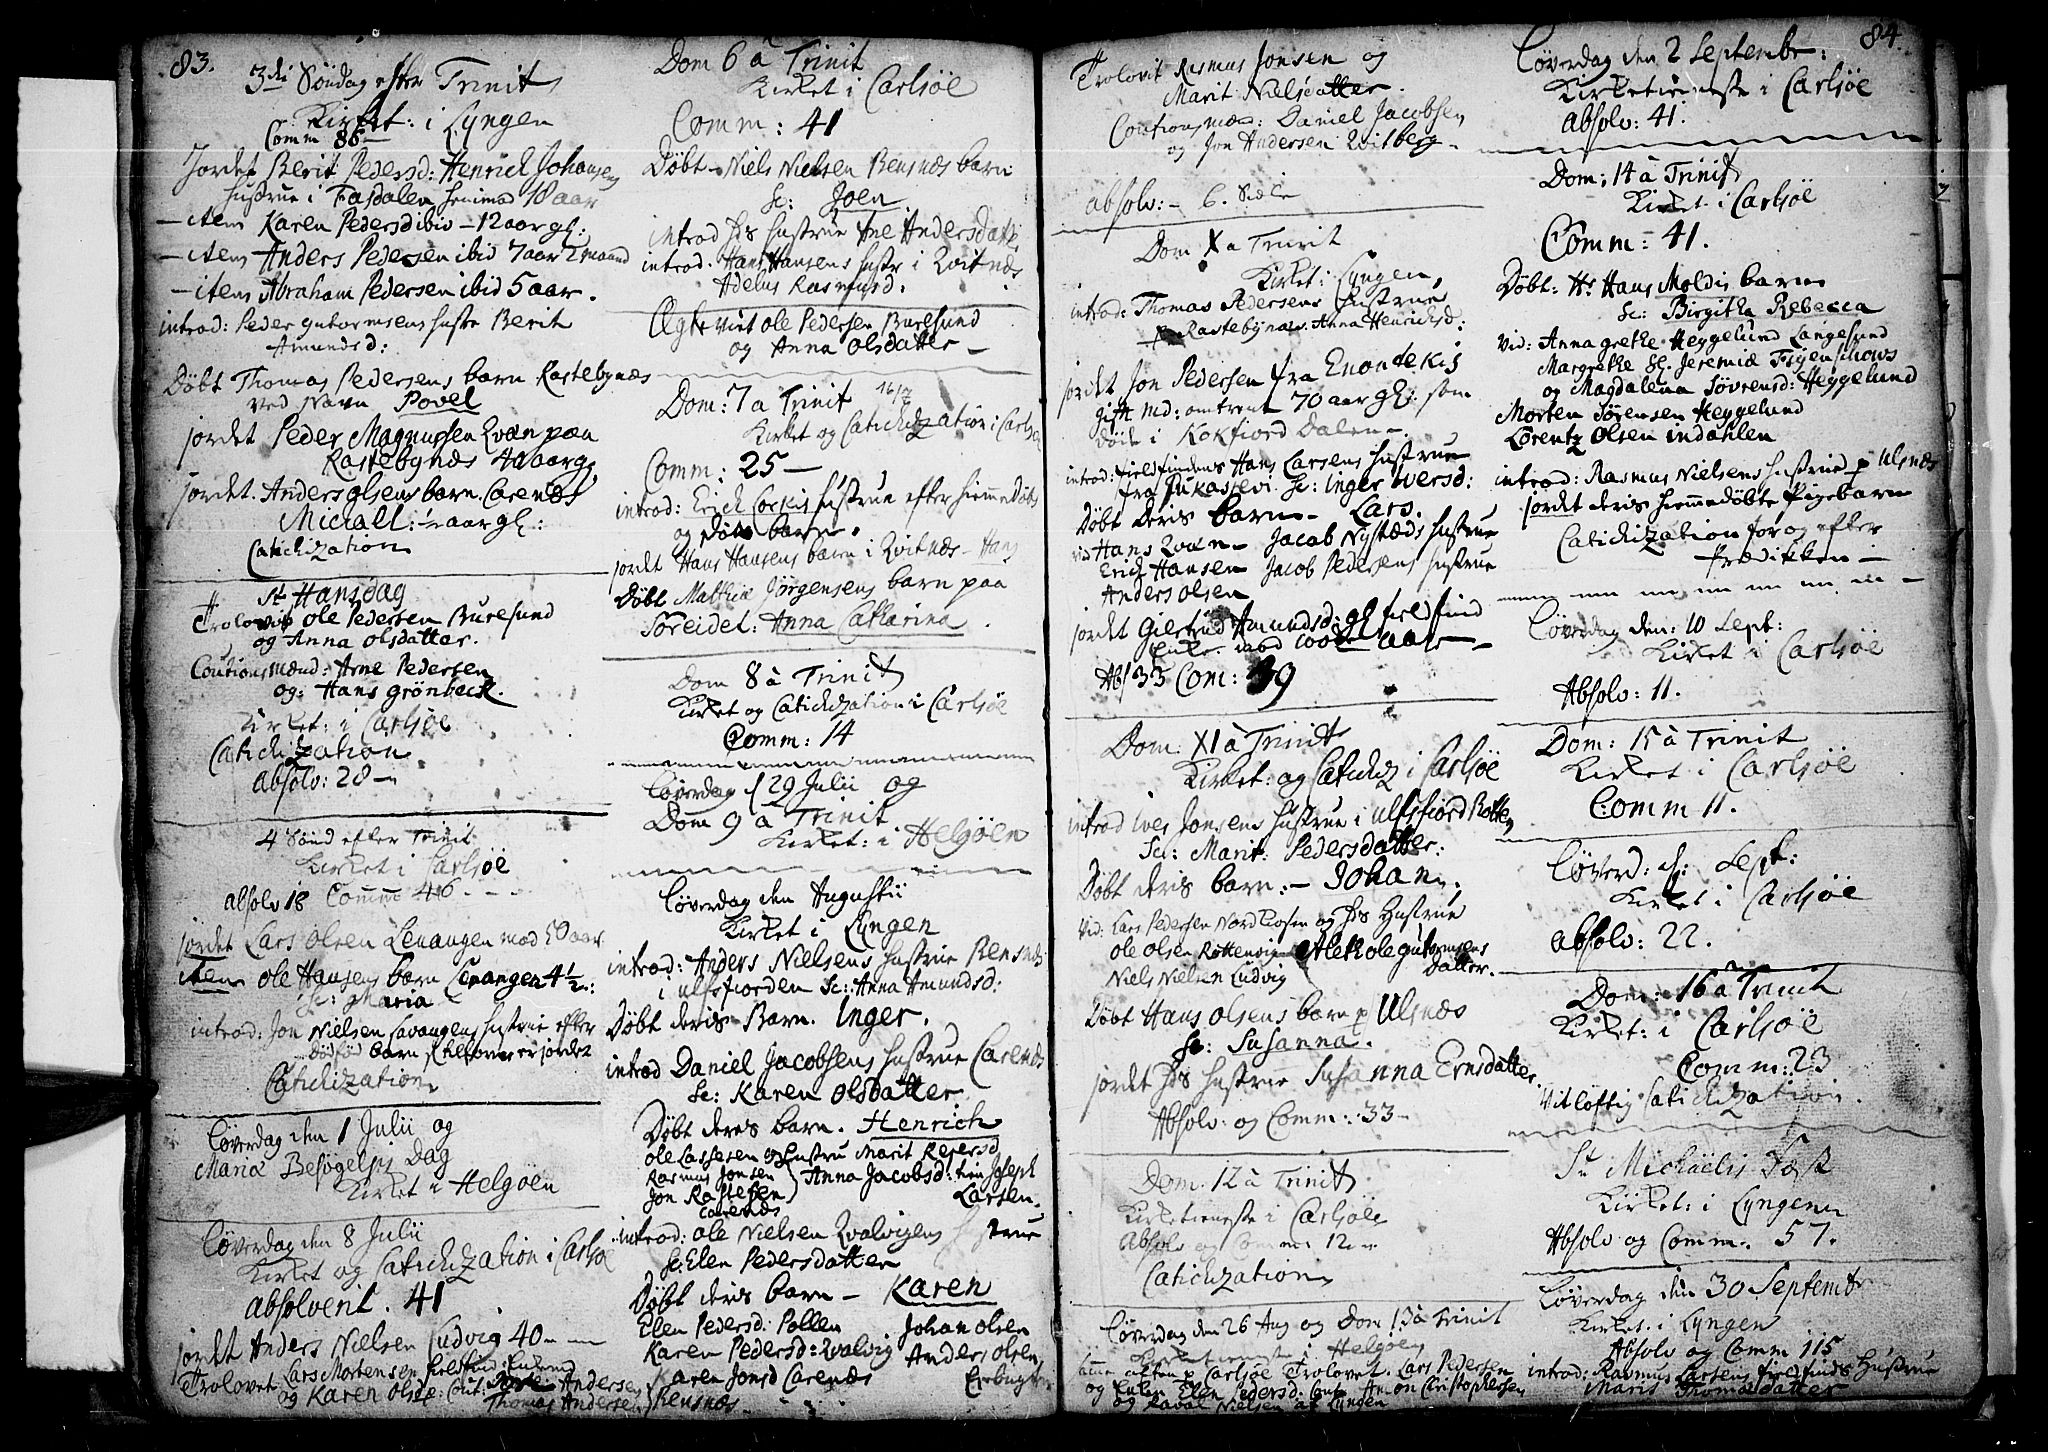 83.
3die Søndag efter Trinit
Kirket: i Lyngen
Comm 86
Jordet Berit Pedersd: Henrich Johansens
hustrue i Fasdalen
– item Karen Pedersd ibid – 12 aar gl:
– item Anders Pedersen ibid 7 aar 2 maand
– item Abraham Pedersen ibid 5 aar.
introd: Peder Gutormsens hustr Berit
Amundsd:
Døbt Thomas Pedersens barn Rastebynæs
ved Navn Povel
jordet Peder Magnussen Qvæn paa
Rastebynæs 40 aar gl
jordet. Anders Olsens barn. Carenæs
Michall: ½ aar gl:
Catichization
St Hansdag
Trolovit Ole Pedersen Buresund
og Anna Olsdatter.
Coutionsmænd: Arne Pedersen
og: Hans Grönbeck.
Kirket: i Carlsøe
Catichization
absolv: 28 –
4 Sønd efter Trinit
Kirket i Carlsøe
absolv 18 Comm 46 – – –
jordet Lars Olsen Levangen med 50 aar
item Ole Hansens barn Levangen 4½:
Sc: Maria
introd: Jon Nielsen Lavangens hustrue efter
dödfød barn
Catichization
Løverdag den 1 Julii og
Mariæ Besøgelses Dag
Kirket i Helgøen
Løverdag den 8 Julii
Kirket og Catichization i Carlsøe
absolverit. 41
jordet Anders Nielsen Ludvig 40
Trolovet Lars Mortensen
og Karen Olsd: Andersen
Thomas Andersen
Dom 6 â Trinit
Kirket i Carlsöe
Comm: 41
Døbt – Niels Nielsen Rensnæs barn
Sc: Joen
introd hs hustrue Ane Andersdatt.
introd. Hans Hansens hustr i Qvitnæs
Adelus Rasmusd.
Ægte viet Ole Pedersen Buresund
og Anna Olsdatter –
Dom: 7 a Trinit 16/7
Kirket og Catichization i Carlsø
Comm: 25 –
introd: Erich hustrue efter hiemmedøbt
og barn.
jordet Hans Hansens barn i Qvitnæs – Hans
Døbt Mathiæ Jørgensens barn paa
Soreidet: Anna Catharina.
Dom 8 â Trinit
Kirket og Catichization i Carlsøe
Comm: 14
Løverdag 29 Julii og
Dom 9 a Trinit
Kirket: i Helgöen
Løverdag den Augustii
Kirket i Lyngen
introd: Anders Nielsens hustrue Rensnæs
i Ulfsfiorden Sc: Anna Amundsd:
Døbt deris Barn. Inger.
introd Daniel Jacobsens hustrue Carenæs
Sc: Karen Olsdatter
Døbt deres barn. Henrich
Ole Lassesen og hustru Marit
Rasmus Jonsen Anna Jacobsd: Joseph
Jon Larsen.
Carenæs
introd: Ole Nielsen Qvalvigens hustrue
Sc: Elen Pedersdatter
Døbt deris barn – Karen
Elen Pedersd: Pollen Johan Olsen
Karen Pedersd: Qvalvig Anders Olsen
Karen Jonsd Carenæs
Rensnæs –
84.
Trolovit Rasmus Jonsen og
Marit Nielsdatter.
Coutionsmæn: Daniel Jacobsen
og Jon Andersen Qvitberg –
absolv: – 6.
Dom X a Trinit
Kirket: Lyngen,
introd: Thomas Pedersens hustrue
Rastebynæs. Anna Henrichsd:
jordet Jon Pedersen fra Enontekis
gift md: omtrent 70 aar gl: som
døde i Kokfiord Dalen –
introd: fieldfindens Hans Larsens hustrue
fra Jukassevi. Sc: Inger Iversd:
Døbt deris barn – Lars.
vid Hans Qvæn – Jacob Nystæds hustrue
Erich Hansen Jacob Pedersens hustrue
Anders Olsen
jordet Giertrud Amundsd: gl fieldfind
Enke. aar –
Abs 33 Com: 39
Dom: XI â Trinit
Kirket: og Catichiz i Carlsöe
introd Iver Jonsens hustrue i Ulfsfiord
Sc: Marit: Pedersdatter:
Døbt deris barn: – Johan.
vid: Lars Pedersen Nord og hs Hustrue
Ole Olsen Rottenvig Aleth Ole Gutormsens
Niels Nielsen Ludvig Datter.
Døbt Hans Olsens barn p Ulsnæs
Sc: Susanna.
jordet hs hustrue Susanna Ernsdatter.
Absolv: og Comm.: 33 –
Dom. 12 â Trinit
Kirketieneste i Carlsöe
Absolv og Comm: 12
Catichization
Løverdag den 26 Aug og Dom 13 â Trinit
Kirketieneste i Helgøen
Carlsøe Trolovet. Lars Pedersen
og Enken Elen Pedersd: Christophersen
og Nielsen af Lyngen
Løverdag den 2 Septembr:
Kirketieneste i Carlsøe
absolv: 41.
Dom: 14 â Trinit
Kirket i Carlsöe
Comm: 41.
Døbt: Hr Hans Moldis barn
Sc: Birgitha Rebecca
vid: Anna Grethe Heggelund Langesund
Margrethe Sl. Jeremiæ Figenschows
og Magdalena Søvrensd: Heggelund
Morten Sørensen Heggelund
Lorentz Olsen Indahlen
introd: Rasmus Nielsens hustrue p Ulsnæs
jordet deris hiemmedøbte Pigebarn
Catichization for og efter
Prædikken –
Løverdag den: 10 Sept:
Kirket i Carlsøe
Absolv: 11.
Dom: 15 â Trinit
Kirket i Carlsøe
Comm 11.
Løverd: d: Sept:
Kirket i Carlsöe
absolv: 22.
Dom: 16 â Trinit
Kirket: i Carlsøe
Comm: 23
vitløftig Catichization.
St Michäelis Fest
Kirket: i Lyngen
Absolv og Comm: 57.
Løverdag den 30 Septembr
Kirket: i Lyngen
Absolv og Comm 115
introd: Rasmus Larsens fieldfinds Hustrue
Maris Thomædatter